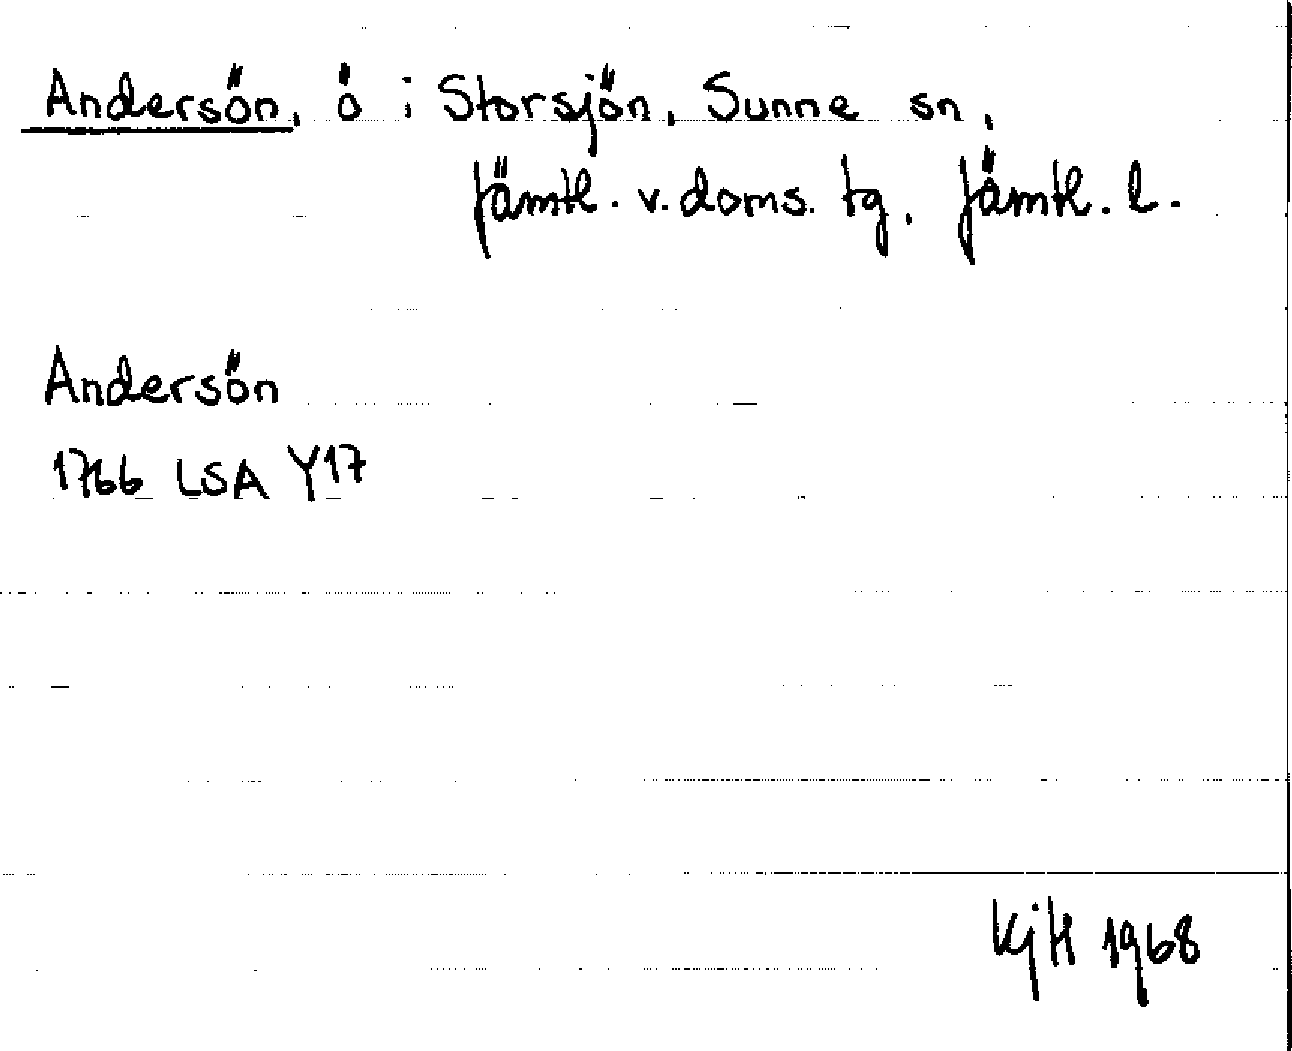 Andersön, ö i Storsjön, Sunne sn,
Jämtl. v. doms. tg, Jämtl. l.
Andersön
1766 LSA Y17
KjH 1968